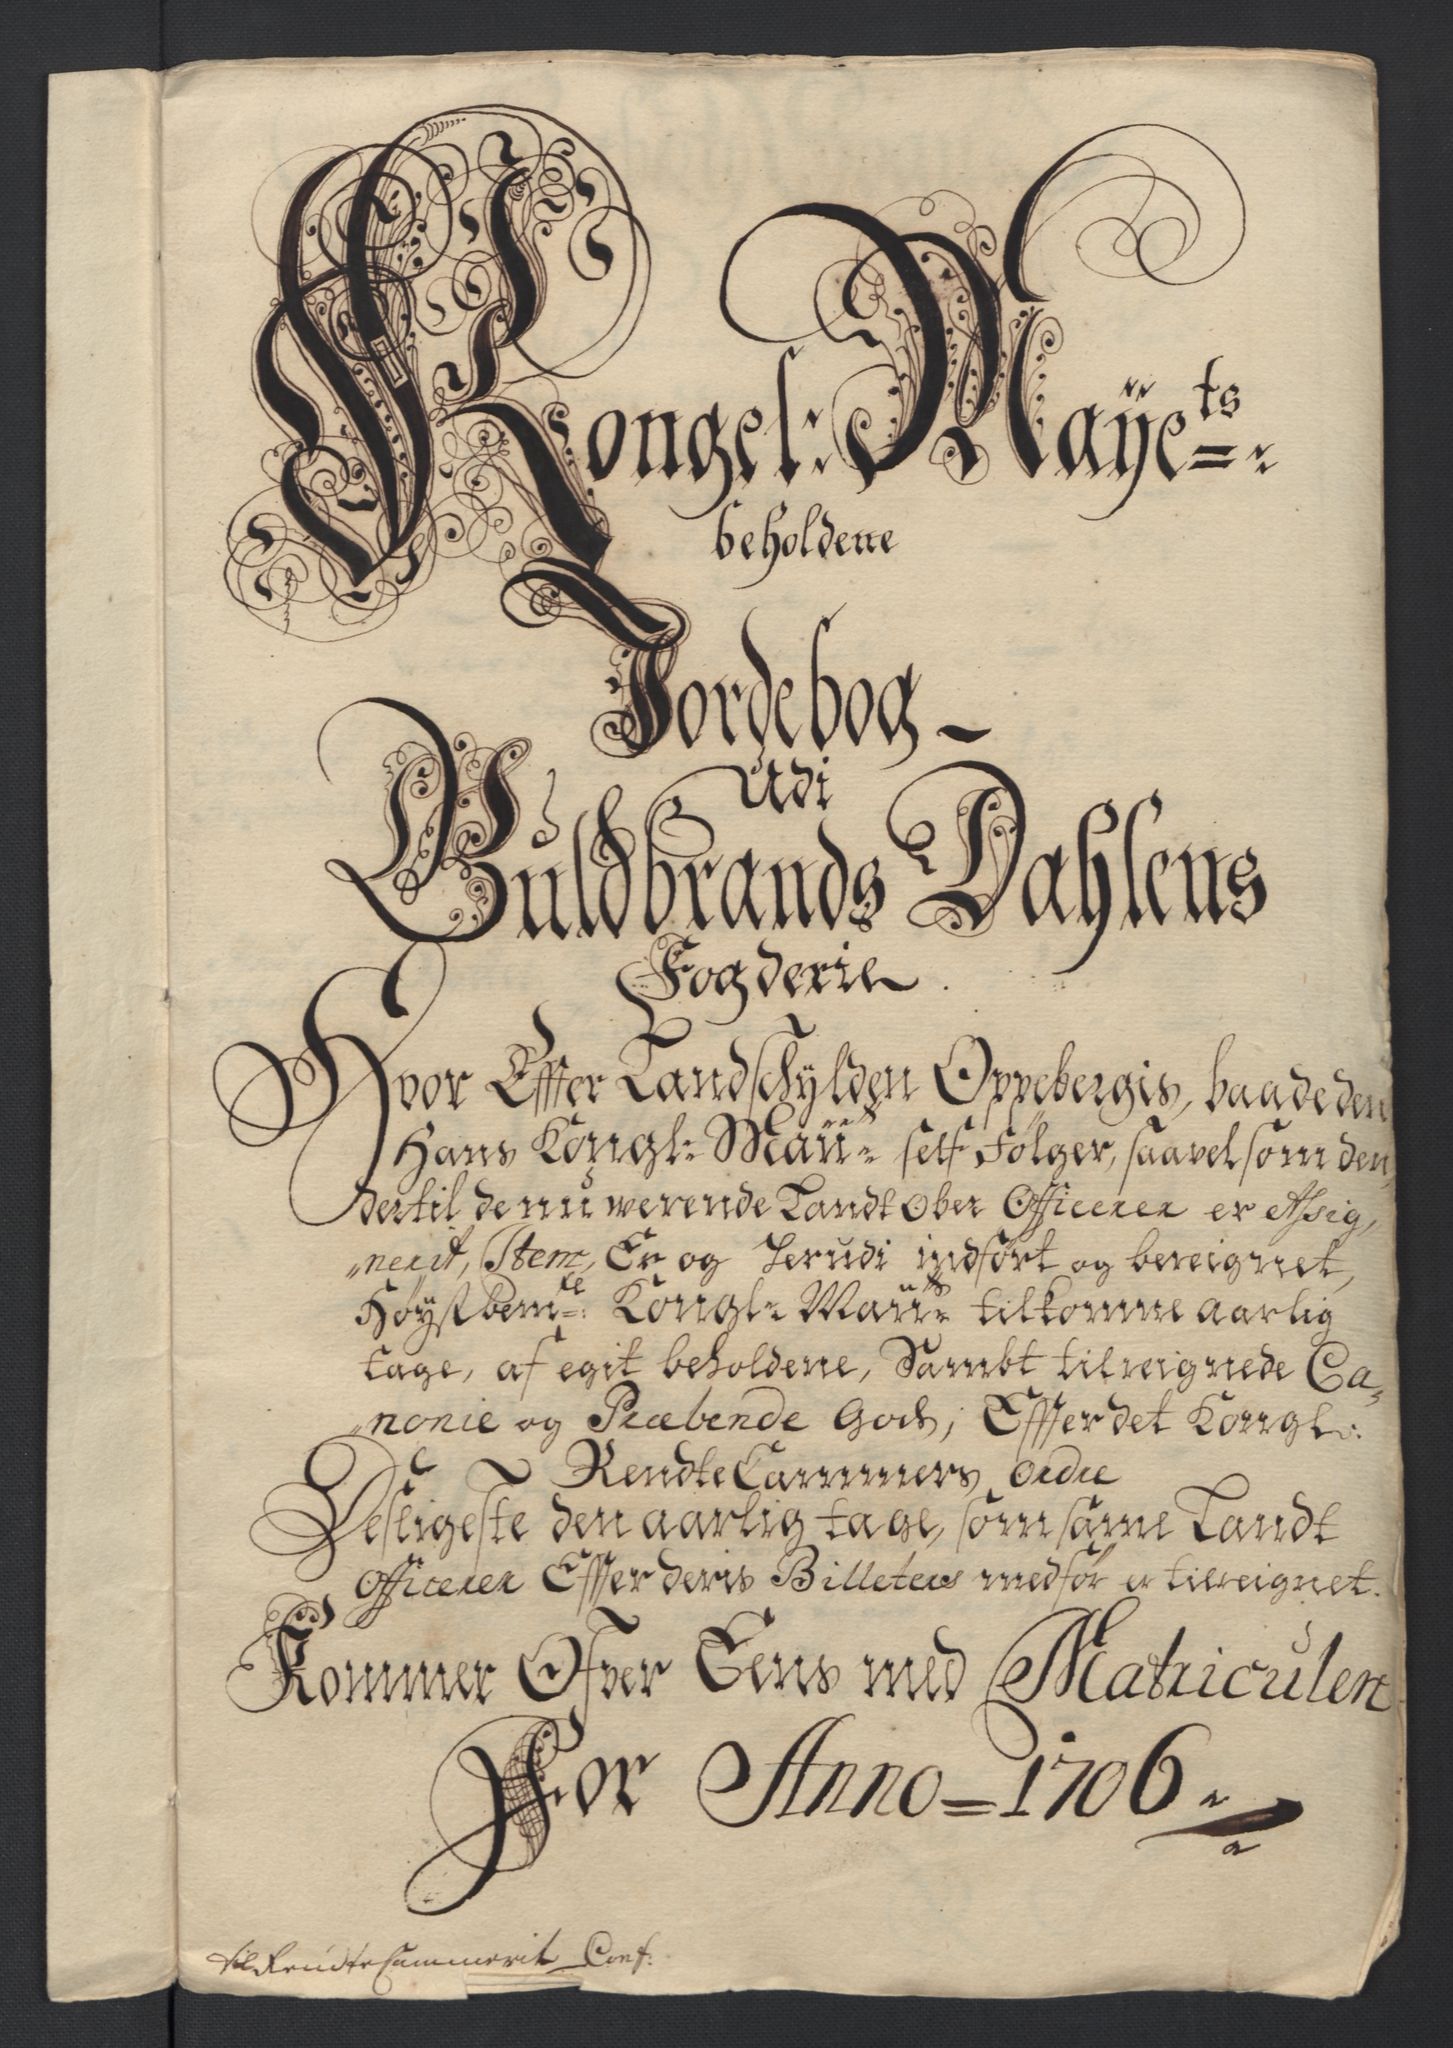 Kongel: Maÿe^ts
beholdene
Jordebog
Udi
Guldbrands Dahlens
Fogderie.
Hvor Effter Landschÿlden Oppebergis, baade den
Hans Kongl: Maÿ^ts self følger, saavelsom den
dertil de nu werende Landt Ober Officerer er Assig,
nerit, Item, Er og Herudi indført og bereignet,
Høÿstbem^te: Kongl: Maÿ^ts tilkomme aarlig
tage, af egit beholdene, Sambt tilreignede Ca,
nonie og Præbende Gods; Effter det Kongl:
Rendte Cammers ordre
Desligeste den aarlig tage, som same Landt
Officerer Effter deris Billeters medfør er tilreignet.
Kommer Ofver Eens med Matriculen
For Anno 1706
til RendteCammerit Conf: